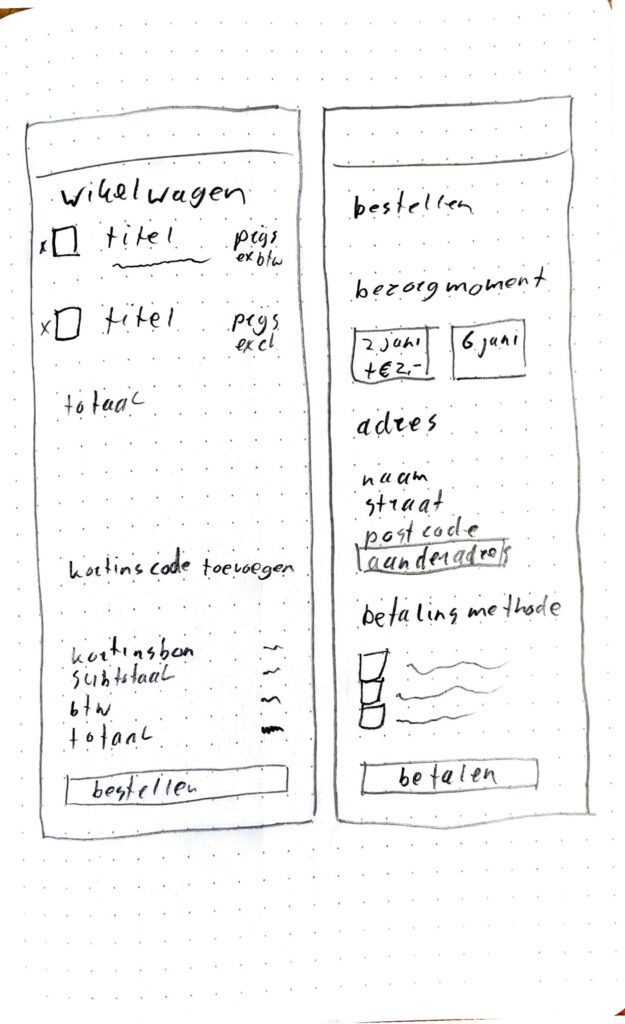 wikelwagen
x titel prys
ex btw
x titel prys
excl
totaal
kortins code toevoegen
kortinsbon
subtotaal
btw
totaal
bestellen
bestellen
bezorgmoment
2 juni
+€2,-
6 juni
adres
naam
straat
postcode
aanderadres
betaling methode
betalen